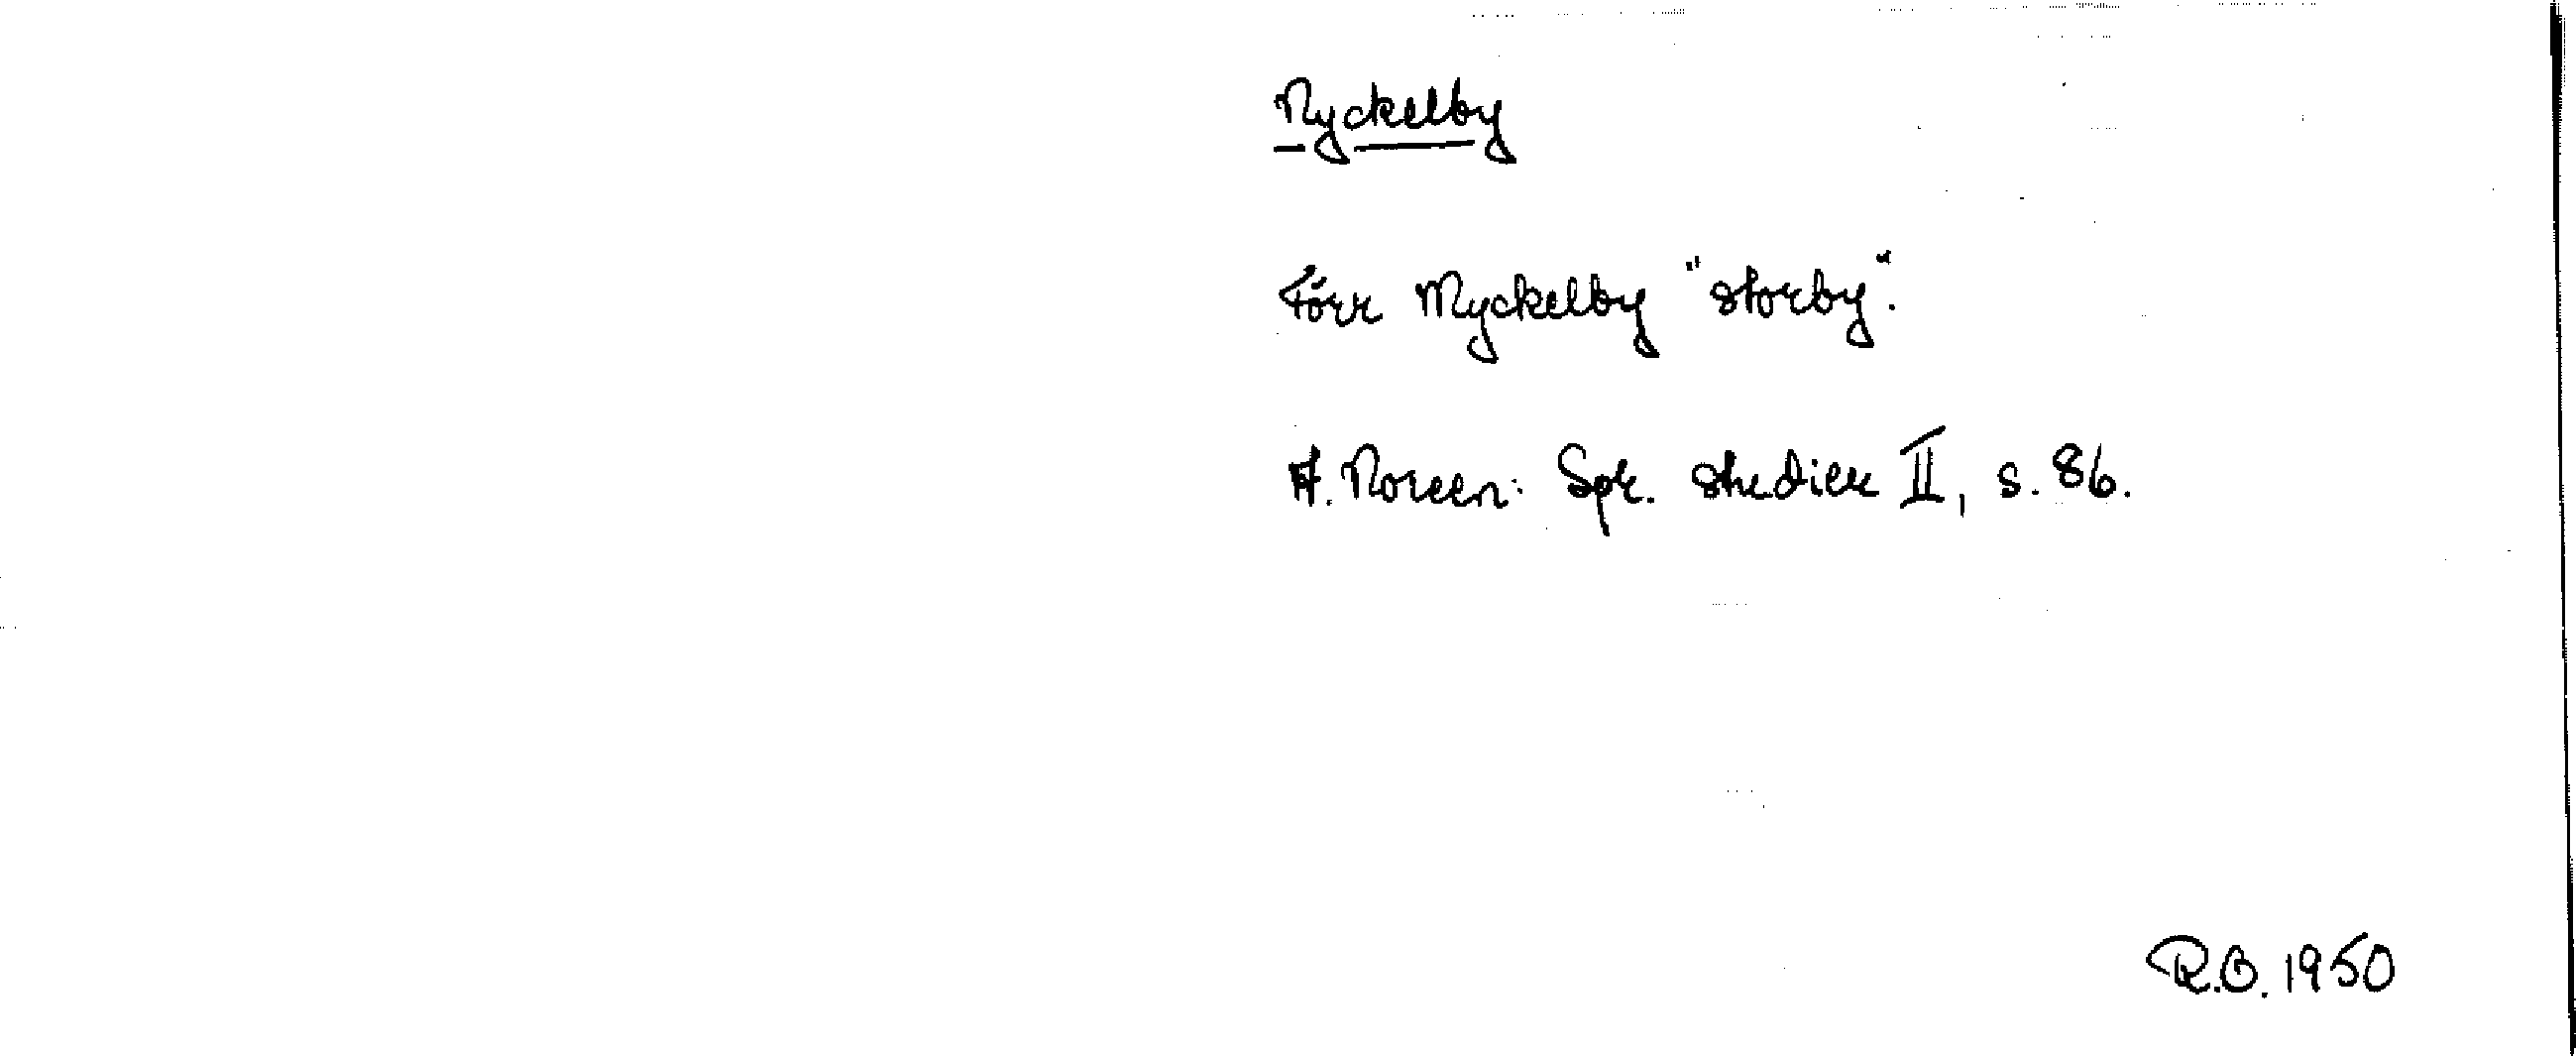 Nyckelby
Förr Myckelby "storby".
A. Noreen: Spr. studier II, s. 86.
R.O. 1950